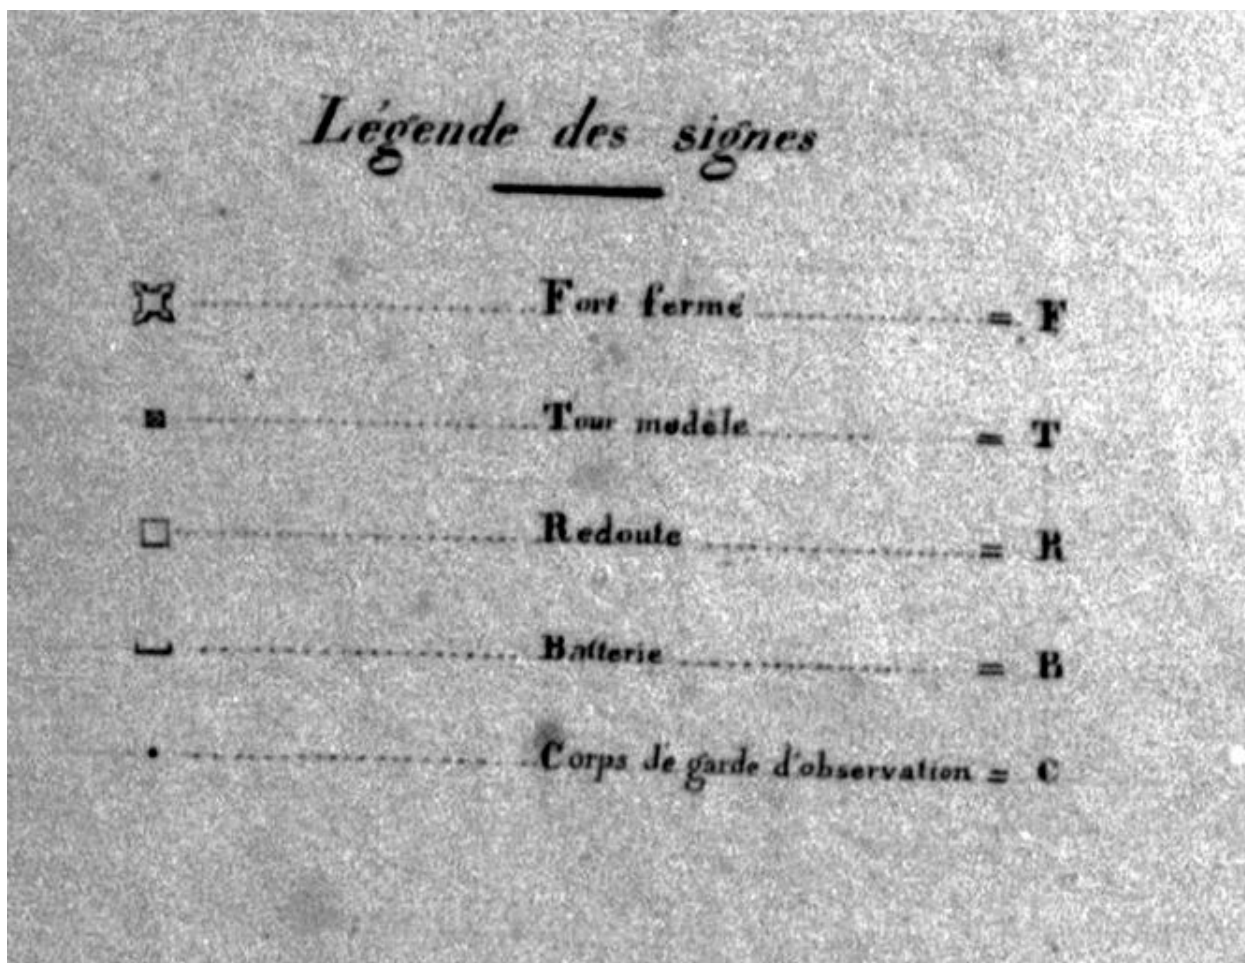 Légende des signes
Fort fermé = F
Tour modèle = T
Redoute = R
Batterie = B
Corps de garde d'observation = C